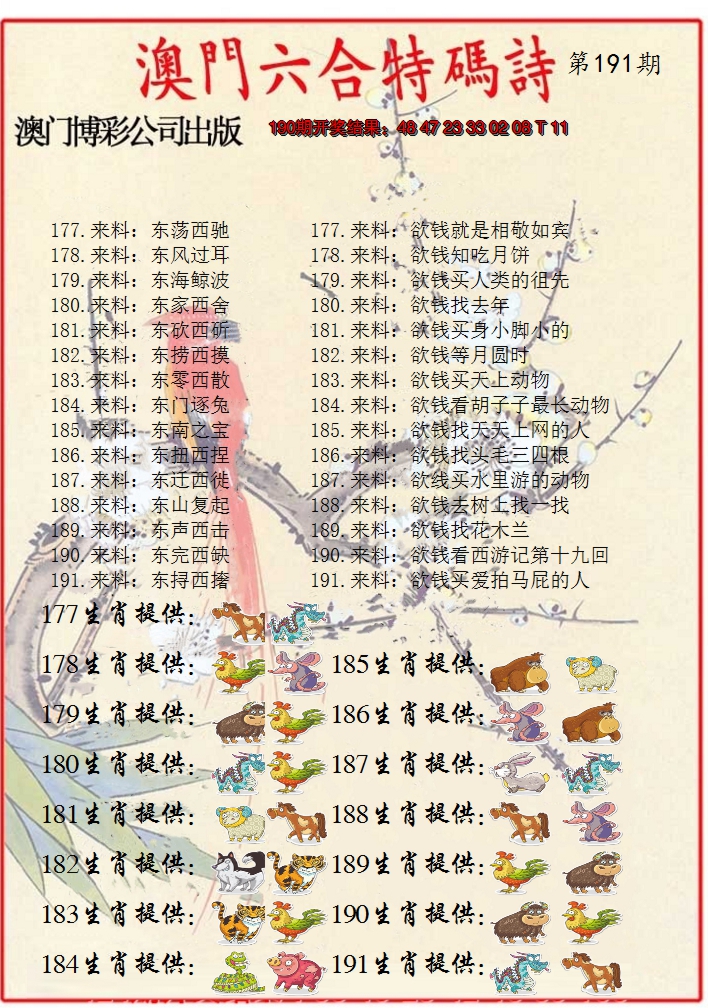 澳門六合特碼詩 第191期
澳门博彩公司出版 190期开奖结果：48 47 23 33 02 08 T 11
177.来料：东荡西驰 177.来料：欲钱就是相敬如宾
178.来料：东风过耳 178.来料：欲钱知吃月饼
179.来料：东海鲸波 179.来料：欲钱买人类的徂先
180.来料：东家西舍 180.来料：欲钱找去年
181.来料：东砍西斫 181.来料：欲钱买身小脚小的
182.来料：东捞西摸 182.来料：欲钱等月圆时
183.来料：东零西散 183.来料：欲钱买天上动物
184.来料：东门逐兔 184.来料：欲钱看胡子子最长动物
185.来料：东南之宝 185.来料：欲钱找天天上网的人
186.来料：东扭西捏 186.来料：欲钱找头毛三四根
187.来料：东迁西徙 187.来料：欲线买水里游的动物
188.来料：东山复起 188.来料：欲钱去树上找一找
189.来料：东声西击 189.来料：欲钱找花木兰
190.来料：东完西缺 190.来料：欲钱看西游记第十九回
191.来料：东挦西撦 191.来料：欲钱买爱拍马屁的人
177生肖提供：
178生肖提供： 185生肖提供：
179生肖提供： 186生肖提供：
180生肖提供： 187生肖提供：
181生肖提供： 188生肖提供：
182生肖提供： 189生肖提供：
183生肖提供： 190生肖提供：
184生肖提供： 191生肖提供：